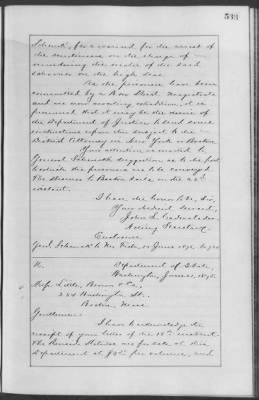 533
Schenck, for a warrant for the arrest of
the mutineers on the charge of
murdering the master of the said
schooner on the high seas.
As the prisoners have been
committed by a Bow Street Magistrate
and are now awaiting extradition, it is
presumed that it may be the desire of
the Department of Justice to send some
instructions upon the subject to the
District Attorney in New York or Boston.
Your attention is invited to
General Schenck's suggestion as to the port
to which the prisoners are to be conveyed.
The steamer to Boston sails on the
instant.
I have the honor to be, Sir,
Your obedient servant,
John L. Cadwalader
Acting Secretary
Enclosure
Genl. Schenck to Mr. Fish, June 1875,
Department of State,
Washington, June 1875.
Little, Brown & Co.,
254 Washington St.,
Boston, Mass
Gentlemen:
I have to acknowledge the
receipt of your letter of the 15th instant.
The Revised Statutes are for sale at this
Department at per volume, and